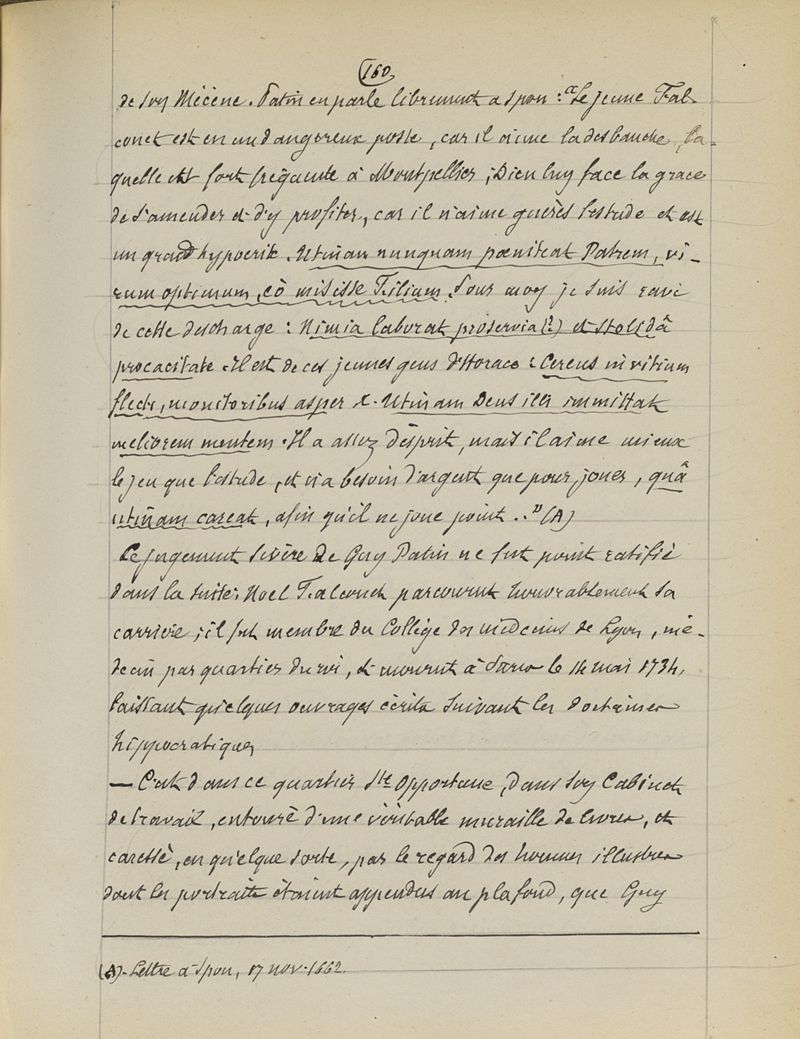 160
de son Mécène. Patin en parle librement a Spon : "Le jeune Fal-
conet est en un dangereux poste, car il aime la desbauche, la-
quelle est fort fréquente à Montpellier ; Dieu luy face la grace
de s'amender et d'y profiter, car il n'aime guères l'estude et est
un grand hypocrite. Utinam nunquam pœniteat Patrem, vi-
rum optimum, eò misisse Filium. Pour moy je suis ravi
de cette descharge : Nimia laborat proservia (?) et stolidâ
procacitate. Il est de ces jeunes gens d'Horace : Cereus in vitium
flecti, monitoribus asper &. Utinam Deus illi immittat
meliorem mentem. Il a assez d'esprit, mais il aime mieux
le jeu que l'estude, et n'a besoin d'argent que pour jouer, quâ
utinam careat, afin qu'il ne joue point .." (A)
Le jugement sévère de Guy Patin ne fut point ratifié
dans la suite. Noel Falconet parcourut honorablement sa
carrière ; il fut membre du Collège des médecins de Lyon, mé-
decin par quartier du roi, et mourut à Paris le 14 mai 1734,
laissant quelques ouvrages écrits suivant les doctrines
hippocratiques
— C'est dans ce quartier Ste Opportune, dans son Cabinet
de travail, entouré d'une véritable muraille de livres, et
caressé, en quelque sorte, par le regard des hommes illustres
dont les portraits étaient appendus au plafond, que Guy
(A) - Lettre à Spon, 17 nov. 1662.